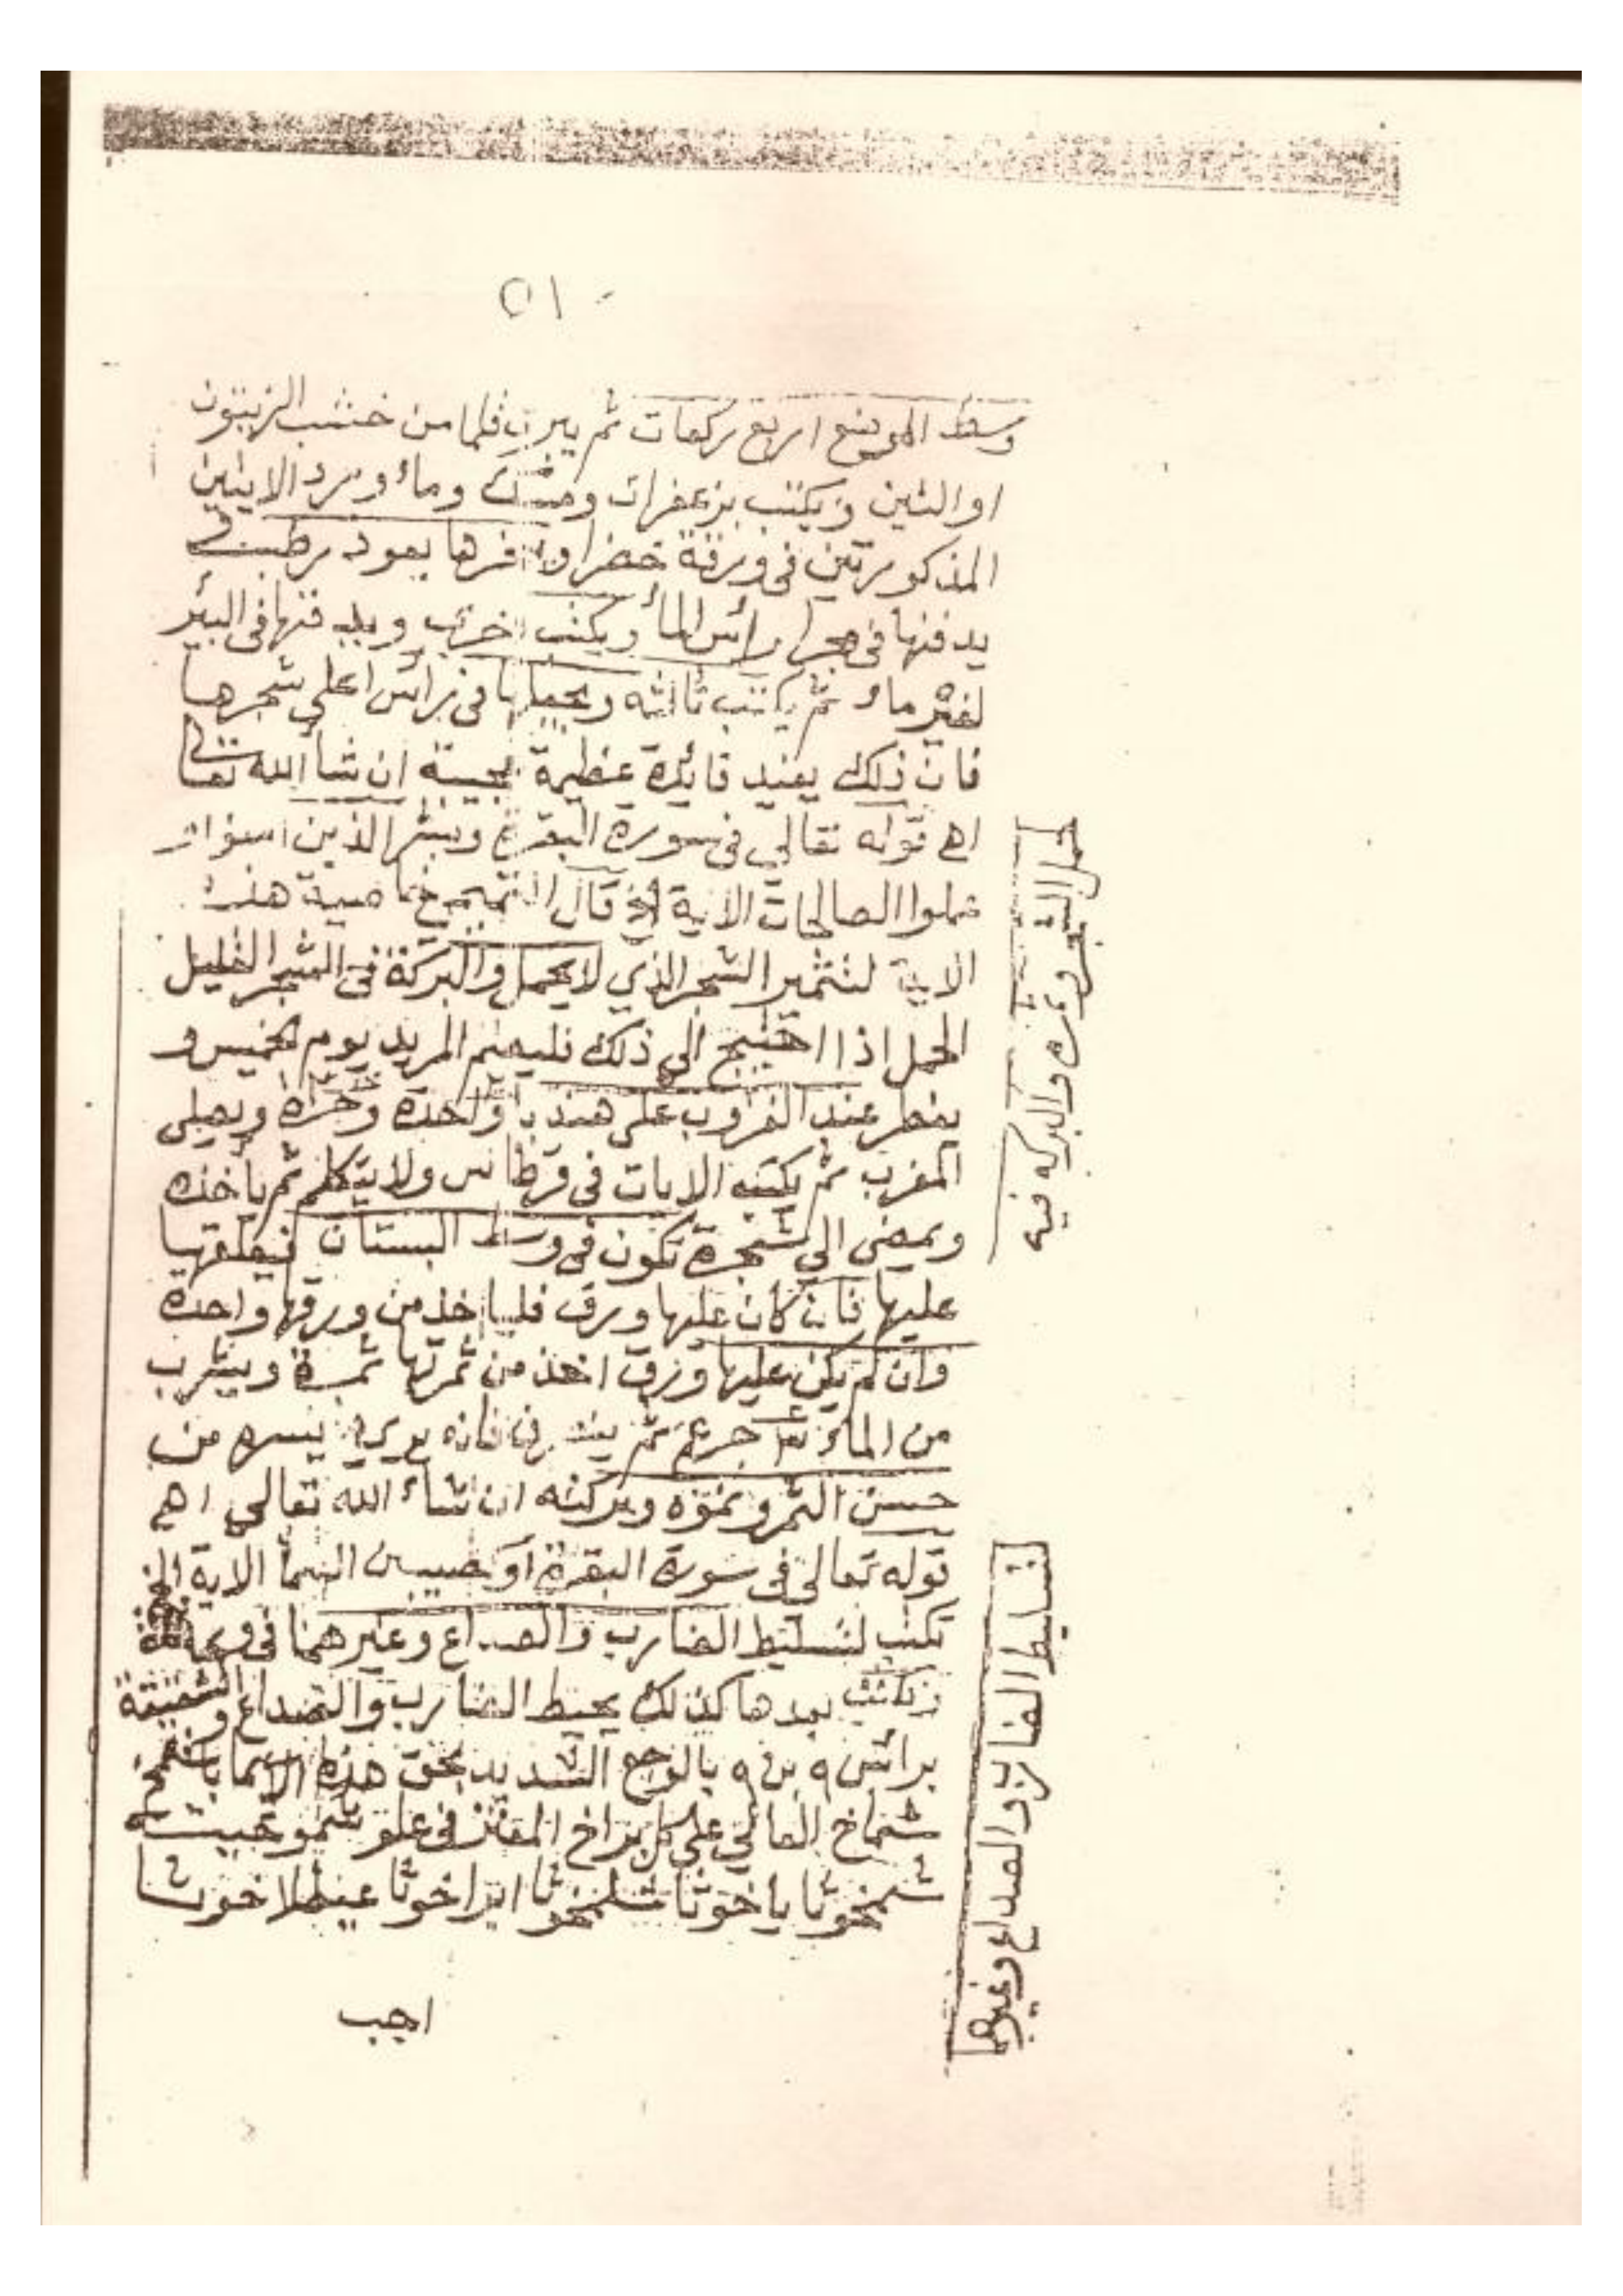 ٥١
وسط الموضع اربع ركعات ثم يبري قلما من خشب الزيتون
او التين ويكتب بزعفران ومسك وماء ورد الايتين
المذكورتين في ورقة خضرا بعود رطب
يدفنها في مجرا راس الماء ويكتب اخرى ويدفنها في البئر
ماء ثم يكتب ثالثه ويجعلها في راس اعلى شجرها
فان ذلك يفيد فائدة عظيمة عجيبة ان شا الله تعالى
اهـ قوله تعالى في سورة البقرة وبشر الذين امنوا و
عملوا الصالحات الاية الخ قال التميمي خاصية هذه
الاية لتثمير الشجر الذي لا يحمل والبركة في الشجر القليل
الحمل اذا احتيج الى ذلك فليصم المريد يوم الخميس و
يفطر عند الغروب على هندبا واحدة ويصلي
المغرب ثم يكتب الايات في قرطاس ولا يتكلم ثم ياخذه
ويمضي الى شجرة تكون في وسط البستان فيعلقها
عليها فان كان عليها ورق فلياخذ من ورقها واحدة
وان لم يكن عليها ورق اخذ من ثمرتها ثمرة ويشرب
من الماء جرع ثم ينصرف فانه يرى ما يسره من
حسن الثمر ونموه وبركته ان شاء الله تعالى اهـ
قوله تعالى في سورة البقرة او كصيب من السما الاية الخ
تكتب لتسليط الضارب والصداع وغيرهما في
وتكتب بعدها كذلك يحيط الضارب والصداع والشقيقة
براس ٩ بن ٩ بالوجع الشديد بحق هذه الاسما
شماخ العالي على كل براخ في علو
شمخوثا ياخوثا شلمخوثا ايراخوثا عيطلاخوثا
اجب
حمل الشجر وثمره والبركه فيه
تسليط الضارب والصداع وغيرهما